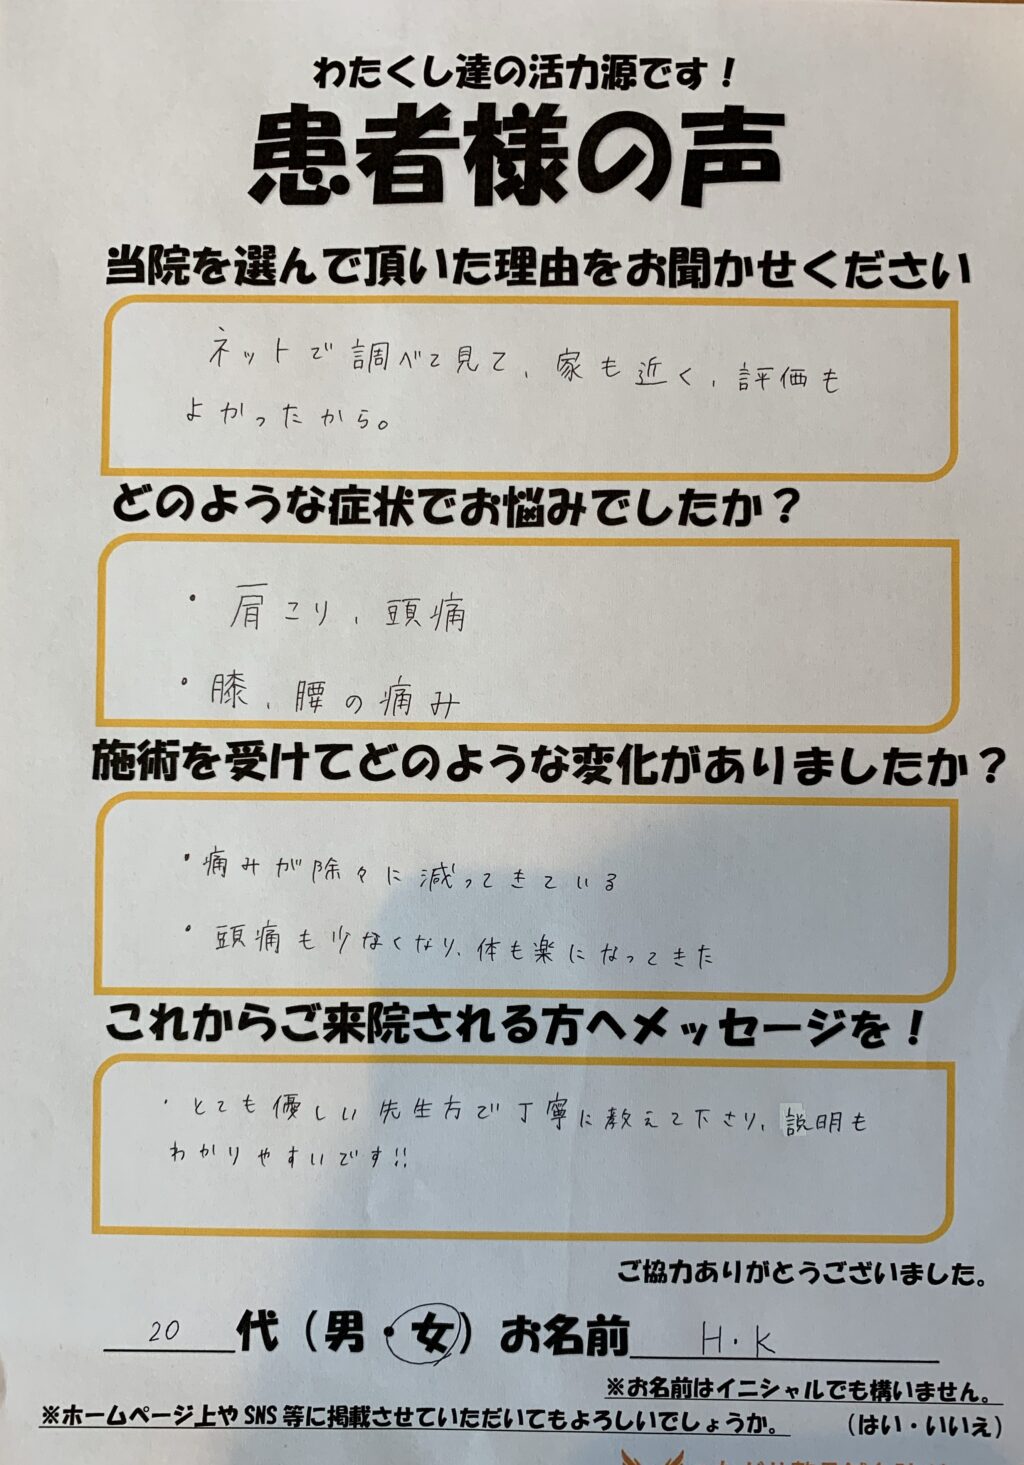 わたくし達の活力源です！
患者様の声
当院を選んで頂いた理由をお聞かせください
ネットで調べて見て、家も近く、評価も
よかったから。
どのような症状でお悩みでしたか？
・肩こり、頭痛
・膝、腰の痛み
施術を受けてどのような変化がありましたか？
・痛みが除々に減ってきている
・頭痛も少なくなり、体も楽になってきた
これからご来院される方へメッセージを！
・とても優しい先生方で丁寧に教えて下さり、説明も
わかりやすいです!!
ご協力ありがとうございました。
20代（男・女）お名前 H・K
※お名前はイニシャルでも構いません。
※ホームページ上やSNS等に掲載させていただいてもよろしいでしょうか。（はい・いいえ）